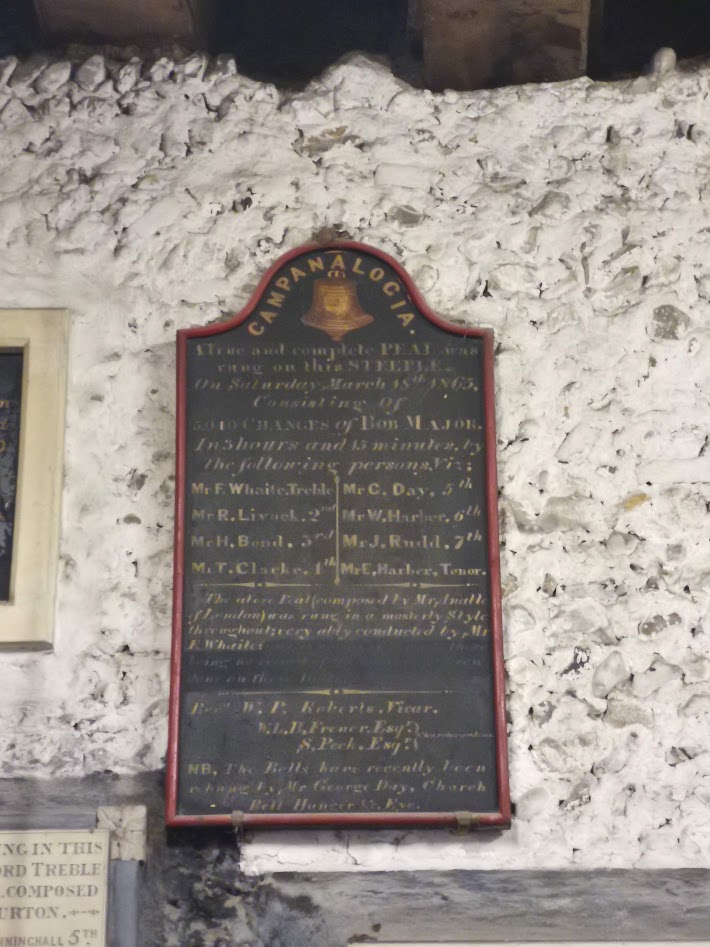 CAMPANALOGIA.
A True and complete PEAL was
rung on this STEEPLE.
On Saturday March 18th 1865.
Consisting Of
5,040 CHANGES of BOB MAJOR.
In 3 hours and 15 minutes, by
the following persons, Viz;
Mr F. Whaite, Treble
Mr R. Livock. 2nd
Mr H. Bond, 3rd
Mr T. Clarke. 4th
Mr C. Day, 5th
Mr W. Harber, 6th
Mr J. Rudd, 7th
Mr E, Harber, Tenor.
The above Peal (composed by Mr
of London) was rung in a masterly Style
throughout; very ably conducted by, Mr
F. Whaite:
W. P. Roberts, Vicar.
Esqr
S. Peck, Esqr
Churchwardens
NB, The Bells have recently been
rehung by, Mr George Day, Church
Bell Hanger &c, Eye.
NG IN THIS
ORD TREBLE
. COMPOSED
URTON.
NNINGHALL 5TH